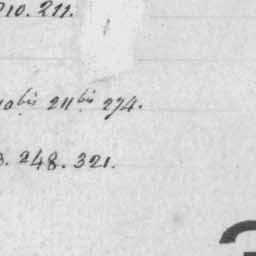 210. 211.
210bis 211bis 274.
3. 248. 321.